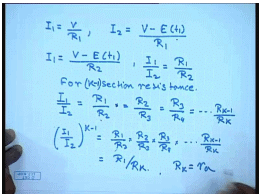 I₁ = V/R₁ , I₂ = V - E(t₁)/R₁
I₁ = V - E(t₁)/R₂ , I₁/I₂ = R₁/R₂
For (K-1) section resistance.
I₁/I₂ = R₁/R₂ = R₂/R₃ = R₃/R₄ = ... R_K-1/R_K
(I₁/I₂)^K-1 = R₁/R₂ . R₂/R₃ . R₃/R₄ , ... R_K-1/R_K
= R₁/R_K . R_K = r_a